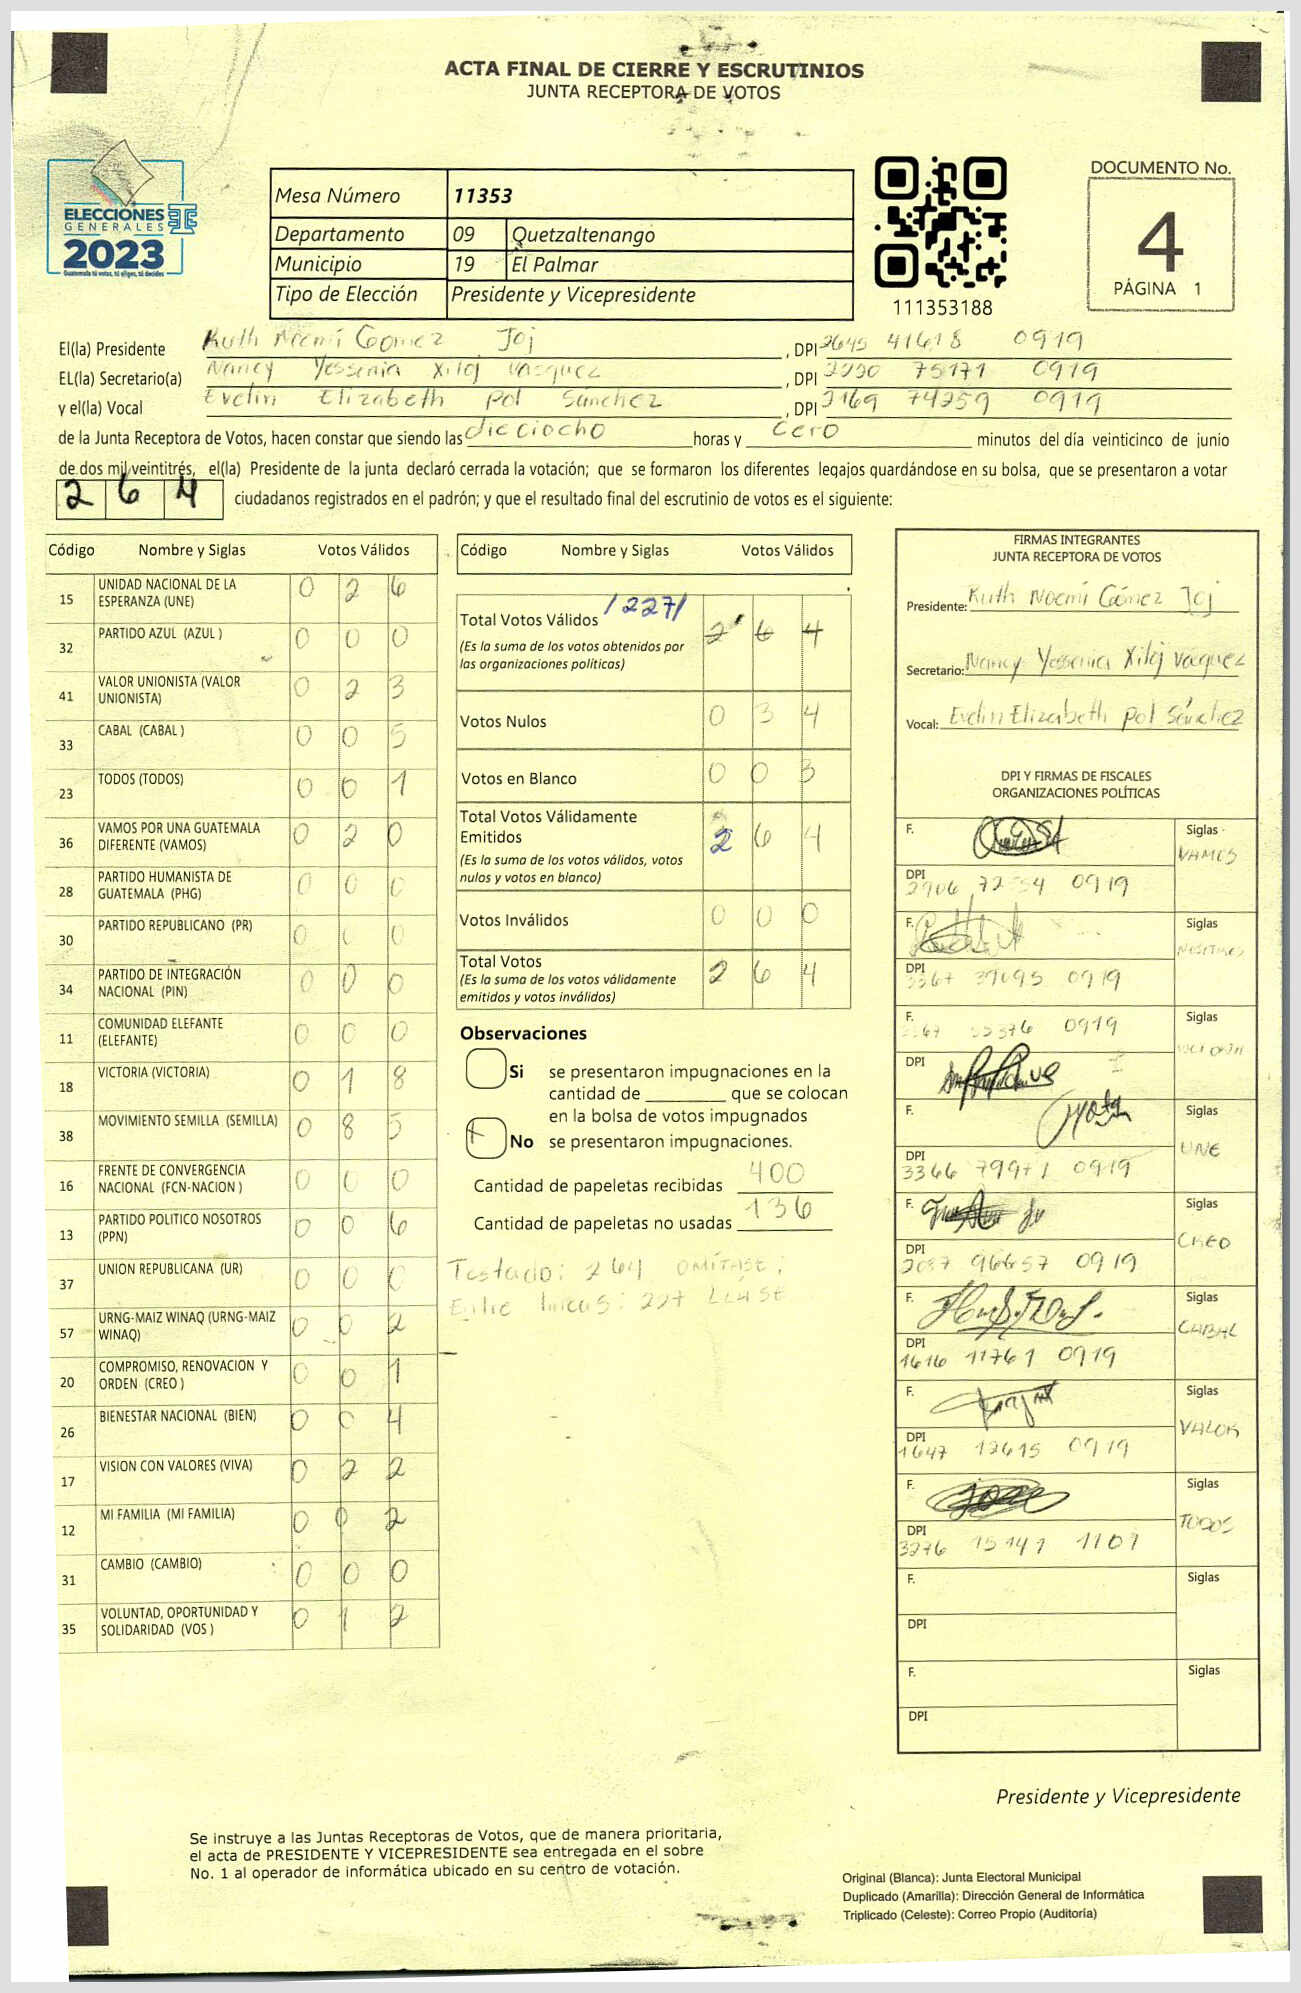 ACTA FINAL DE CIERRE Y ESCRUTINIOS
JUNTA RECEPTORA DE VOTOS
ELECCIONES
GENERALES
2023
Guatemala tú votas, tú eliges, tú decides
Mesa Número 11353
Departamento 09 Quetzaltenango
Municipio 19 El Palmar
Tipo de Elección Presidente y Vicepresidente
111353188
DOCUMENTO No.
4
PÁGINA 1
El(la) Presidente Ruth Noemí Gómez Joj, DPI 2645 41618 0919
EL(la) Secretario(a) Nancy Yessenia Xiloj Vásquez, DPI 75171 0919
y el(la) Vocal Evelin Elizabeth Pol Sánchez, DPI 2169 74259 0919
de la Junta Receptora de Votos, hacen constar que siendo las dieciocho horas y cero minutos del día veinticinco de junio
de dos mil veintitrés, el(la) Presidente de la junta declaró cerrada la votación; que se formaron los diferentes legajos guardándose en su bolsa, que se presentaron a votar
264 ciudadanos registrados en el padrón; y que el resultado final del escrutinio de votos es el siguiente:
Código Nombre y Siglas Votos Válidos
15 UNIDAD NACIONAL DE LA ESPERANZA (UNE) 0 2 6
32 PARTIDO AZUL (AZUL ) 0 0 0
41 VALOR UNIONISTA (VALOR UNIONISTA) 0 2 3
33 CABAL (CABAL ) 0 0 5
23 TODOS (TODOS) 0 0 1
36 VAMOS POR UNA GUATEMALA DIFERENTE (VAMOS) 0 2 0
28 PARTIDO HUMANISTA DE GUATEMALA (PHG) 0 0 0
30 PARTIDO REPUBLICANO (PR) 0 0 0
34 PARTIDO DE INTEGRACIÓN NACIONAL (PIN) 0 0 0
11 COMUNIDAD ELEFANTE (ELEFANTE) 0 0 0
18 VICTORIA (VICTORIA) 0 1 8
38 MOVIMIENTO SEMILLA (SEMILLA) 0 8 5
16 FRENTE DE CONVERGENCIA NACIONAL (FCN-NACION ) 0 0 0
13 PARTIDO POLITICO NOSOTROS (PPN) 0 0 6
37 UNION REPUBLICANA (UR) 0 0 0
57 URNG-MAIZ WINAQ (URNG-MAIZ WINAQ) 0 0 2
20 COMPROMISO, RENOVACION Y ORDEN (CREO ) 0 0 1
26 BIENESTAR NACIONAL (BIEN) 0 0 4
17 VISION CON VALORES (VIVA) 0 2 2
12 MI FAMILIA (MI FAMILIA) 0 0 2
31 CAMBIO (CAMBIO) 0 0 0
35 VOLUNTAD, OPORTUNIDAD Y SOLIDARIDAD (VOS ) 0 1 2
Código Nombre y Siglas Votos Válidos
Total Votos Válidos /227/ 2 6 4
(Es la suma de los votos obtenidos por
las organizaciones políticas)
Votos Nulos 0 3 4
Votos en Blanco 0 0 3
Total Votos Válidamente
Emitidos 2 6 4
(Es la suma de los votos válidos, votos
nulos y votos en blanco)
Votos Inválidos 0 0 0
Total Votos 2 6 4
(Es la suma de los votos válidamente
emitidos y votos inválidos)
Observaciones
Si se presentaron impugnaciones en la
cantidad de ________ que se colocan
en la bolsa de votos impugnados
No se presentaron impugnaciones.
Cantidad de papeletas recibidas 400
Cantidad de papeletas no usadas 136
Testado: 264 OMÍTASE.
Entre lineas: 227 LÉASE
FIRMAS INTEGRANTES
JUNTA RECEPTORA DE VOTOS
Presidente: Ruth Noemí Gómez Joj
Secretario: Nancy Yessenia Xiloj Vásquez
Vocal: Evelin Elizabeth Pol Sánchez
DPI Y FIRMAS DE FISCALES
ORGANIZACIONES POLÍTICAS
F. Siglas
VAMOS
DPI 0919
F. Siglas
DPI 0919
F. 0919 Siglas
DPI
F. Siglas
UNE
DPI 3366 79971 0919
F. Siglas
CREO
DPI 96657 0919
F. Siglas
CABAL
DPI 1616 11761 0919
F. Siglas
VALOR
DPI 1647 12615 0919
F. Siglas
TODOS
DPI 3276 15141 1101
F. Siglas
DPI
F. Siglas
DPI
Presidente y Vicepresidente
Se instruye a las Juntas Receptoras de Votos, que de manera prioritaria,
el acta de PRESIDENTE Y VICEPRESIDENTE sea entregada en el sobre
No. 1 al operador de informática ubicado en su centro de votación.
Original (Blanca): Junta Electoral Municipal
Duplicado (Amarilla): Dirección General de Informática
Triplicado (Celeste): Correo Propio (Auditoría)